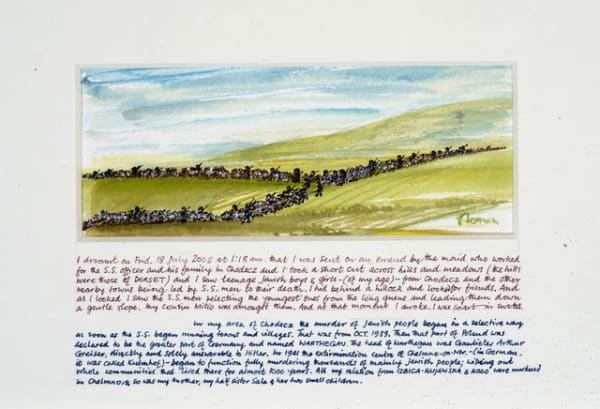 Norman
I dreamt on Frid. 18 July 2008 at 1:15 am. that I was sent on an errand by the maid who worked
for the S.S. officer and his family in Chodecz and I took a short cut across hills and meadows (the hills
were those of DORSET) and I saw teenage Jewish boys & girls-(of my age)- from Chodecz and the other
nearby towns being led by S.S. men to their death. I hid behind a hillock and looked for friends. And
as I looked I saw the S.S. men selecting the youngest ones from the long queue and leading them down
a gentle slope. My cousin Mitio was amongst them. And at that moment I awoke. I was in sweat.
In my area of Chodecz the murder of Jewish people began in a selective way
as soon as the S.S. began running towns and villages. That was from OCT. 1939. Then that part of Poland was
declared to be the greater part of Germany and named WARTHEGAU. The head of Warthegau was Gauleiter Arthur
Greiser, directly and solely answerable to Hitler. In 1941 the extermination centre of Chelmno-on-Ner-(in German
it was called Kulmhof)- began to function fully murdering thousands of mainly Jewish people; wiping out
whole communities that lived there for almost 1000 years. All my relation from IZBICA-KUJAWSKA & KOLO were murdered
in Chelmno; so was my mother, my half sister Sala & her two small children.